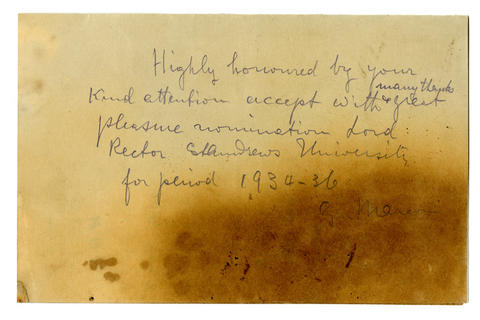 Highly honoured by your
many thanks
kind attention accept with & great
pleasure nomination Lord
Rector StAndrews University
for period 1934-36
G. Marconi